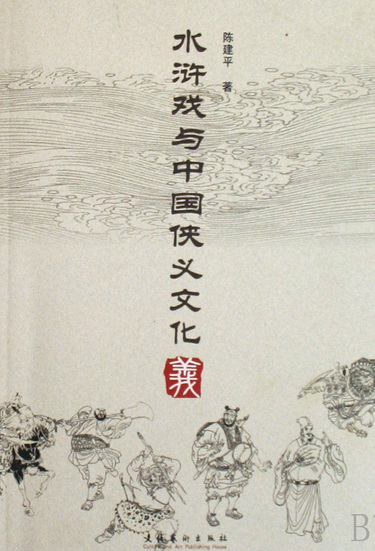 水浒戏与中国侠义文化
陈建平 著
義
文化艺术出版社
Culture and Art Publishing House
B